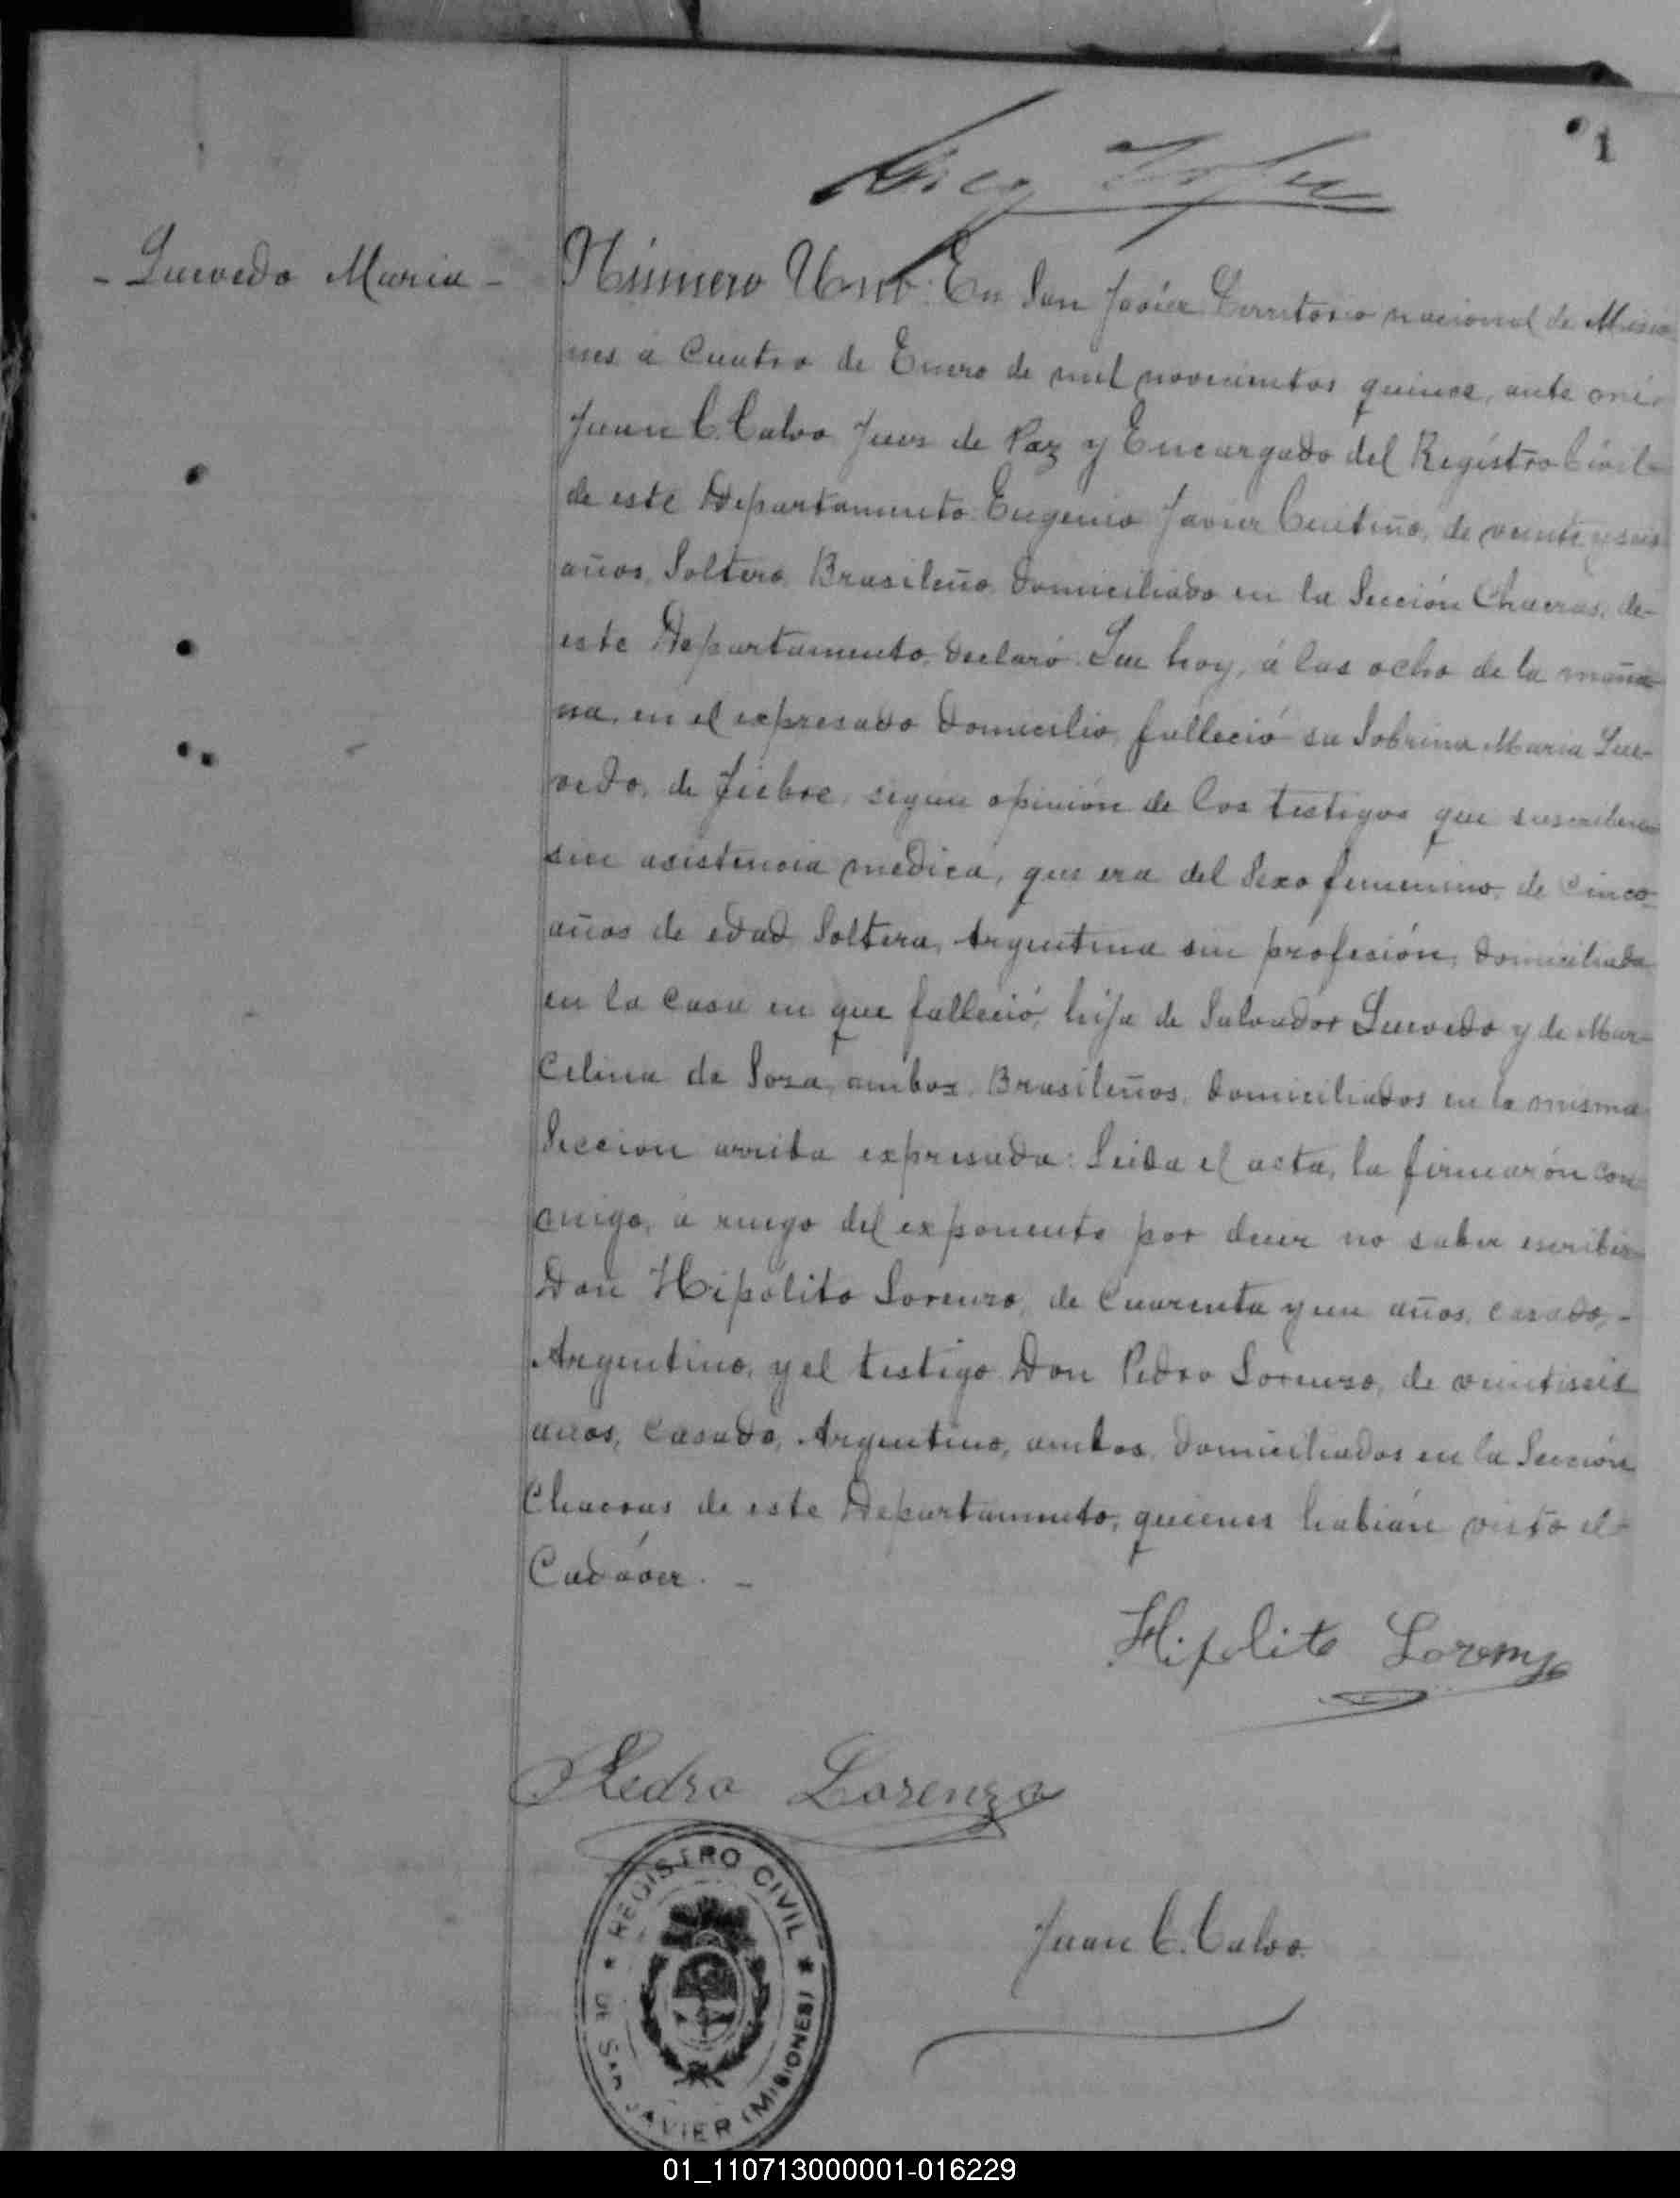 1
- Quevedo Maria -
Número Uno. En San Javier Territorio nacional de Misio
nes á Cuatro de Enero de mil novecientos quince, ante mi
Juan C. Calvo Juez de Paz y Encargado del Registro Civil
de este Departamento Eugenio Javier Cuitiño, de veinte y seis
años, Soltero, Brasileño domiciliado en la Sección Chacras, de
este Departamento, declaró: Que hoy, á las ocho de la maña
na, en el expresado domicilio, falleció su Sobrina Maria Que-
vedo, de fiebre, segun opinión de los testigos que suscriben
sin asistencia médica, que era del Sexo femenino, de Cinco
años de edad, Soltera, Argentina sin profesión, domiciliada
en la Casa en que falleció, hija de Salvador Quevedo y de Mar-
celina de Sosa, ambos Brasileños, domiciliados en la misma
Sección arriba expresada: Leida el acta, la firmarón con
migo, á ruego del exponente por decir no saber escribir
Don Hipólito Lorenzo, de Cuarenta y un años, casado, -
Argentino, y el testigo Don Pedro Lorenzo, de veintiseis
años, Casado, Argentino, ambos domiciliados en la Sección
Chacras de este Departamento, quienes habián visto el
Cadáver. -
Hipolito Lorenzo
Pedro Lorenzo
REGISTRO CIVIL
DE SAN JAVIER (MISIONES)
Juan C. Calvo
01_110713000001-016229